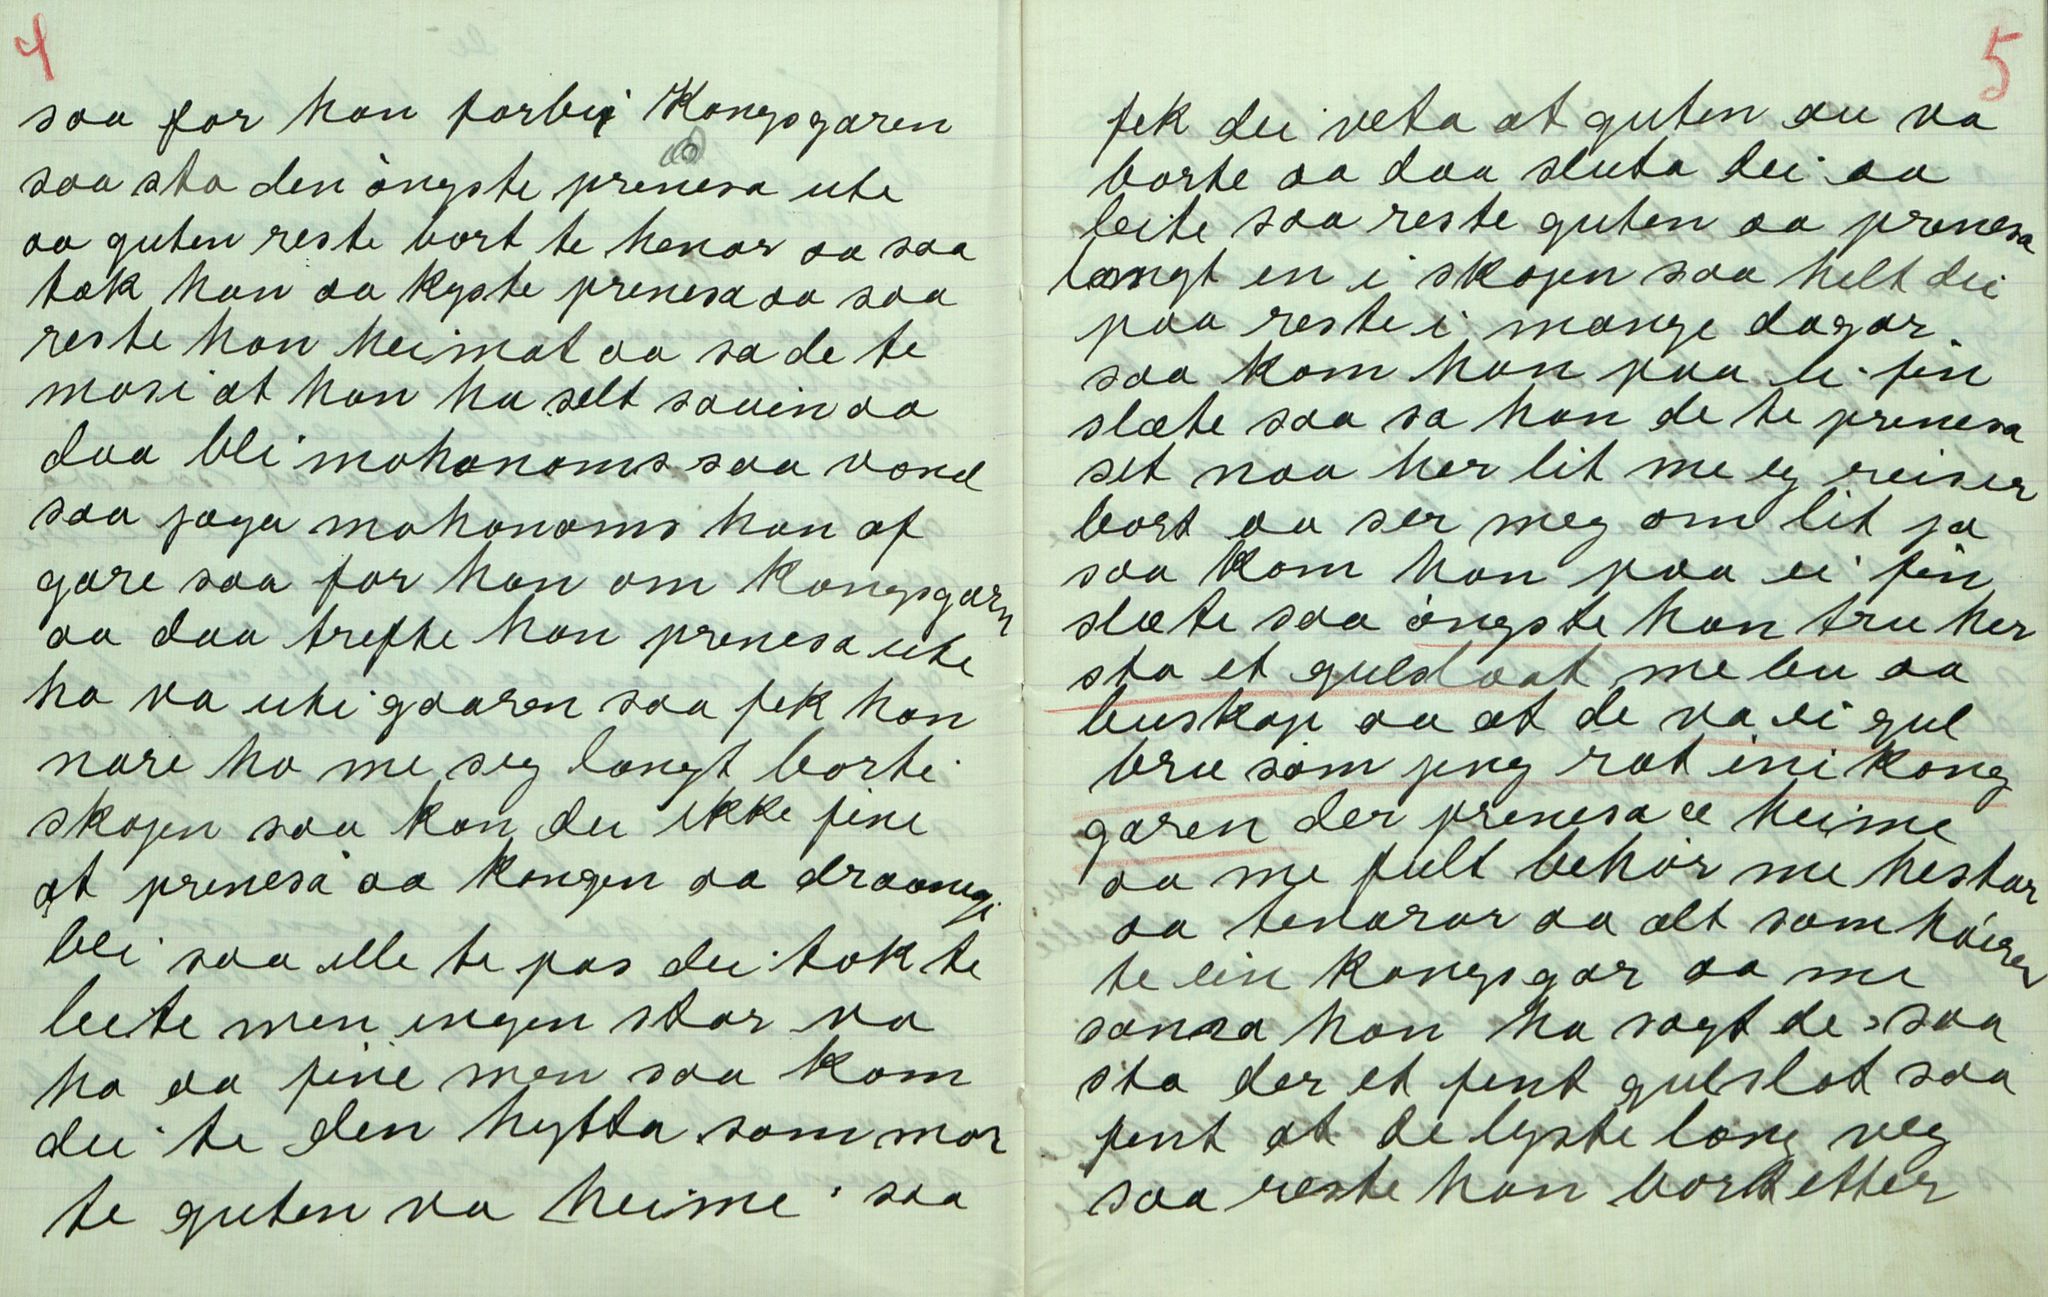 4
saa for han forbi Kongsgaren
saa sto den òngste prenesa ute
aa guten reste bort te henar aa saa
tok han aa kyste prenesa aa saa
reste han heimat aa sa de te
mori at han ha selt sauin aa
daa blei mohanams saa vond
saa jaga mohanams han af
gare saa for han om Kongsgarn
aa daa trefte han prenesa ute
ho va uti gaaren saa fek han
nare ho me seg langt borti
skogen saa kan dei ikke fine
at prenesa aa kongen aa draaningi
blei saa ille te pas dei tok te
leite men ingen star va
ho aa fine men saa kom
dei te den hytta som mor
te guten va heime saa
5
fek dei veta at guten au va
borte aa daa sluta dei aa
leite saa reste guten aa prenesa
langt en i skogen saa helt dei
paa reste i mange dagar
saa kom han paa ei fin
slæte saa sa han de te prenesa
set naa her lit me eg reiser
bort aa ser meg om lit ja
saa kom han paa ei fin
slæte saa òngste han tru her
sto et gulslaat me bu aa
buskap aa at de va ei gul
bru som jeng rat ini kong
garen der prenesa æ heime
aa me fult behòr me hestar
aa tenarar aa alt som hòirer
te ein kongsgar aa me
sama han ha sagt de saa
sto der et fent gulslot saa
fent at de lyste lang veg
saa reste han bort etter